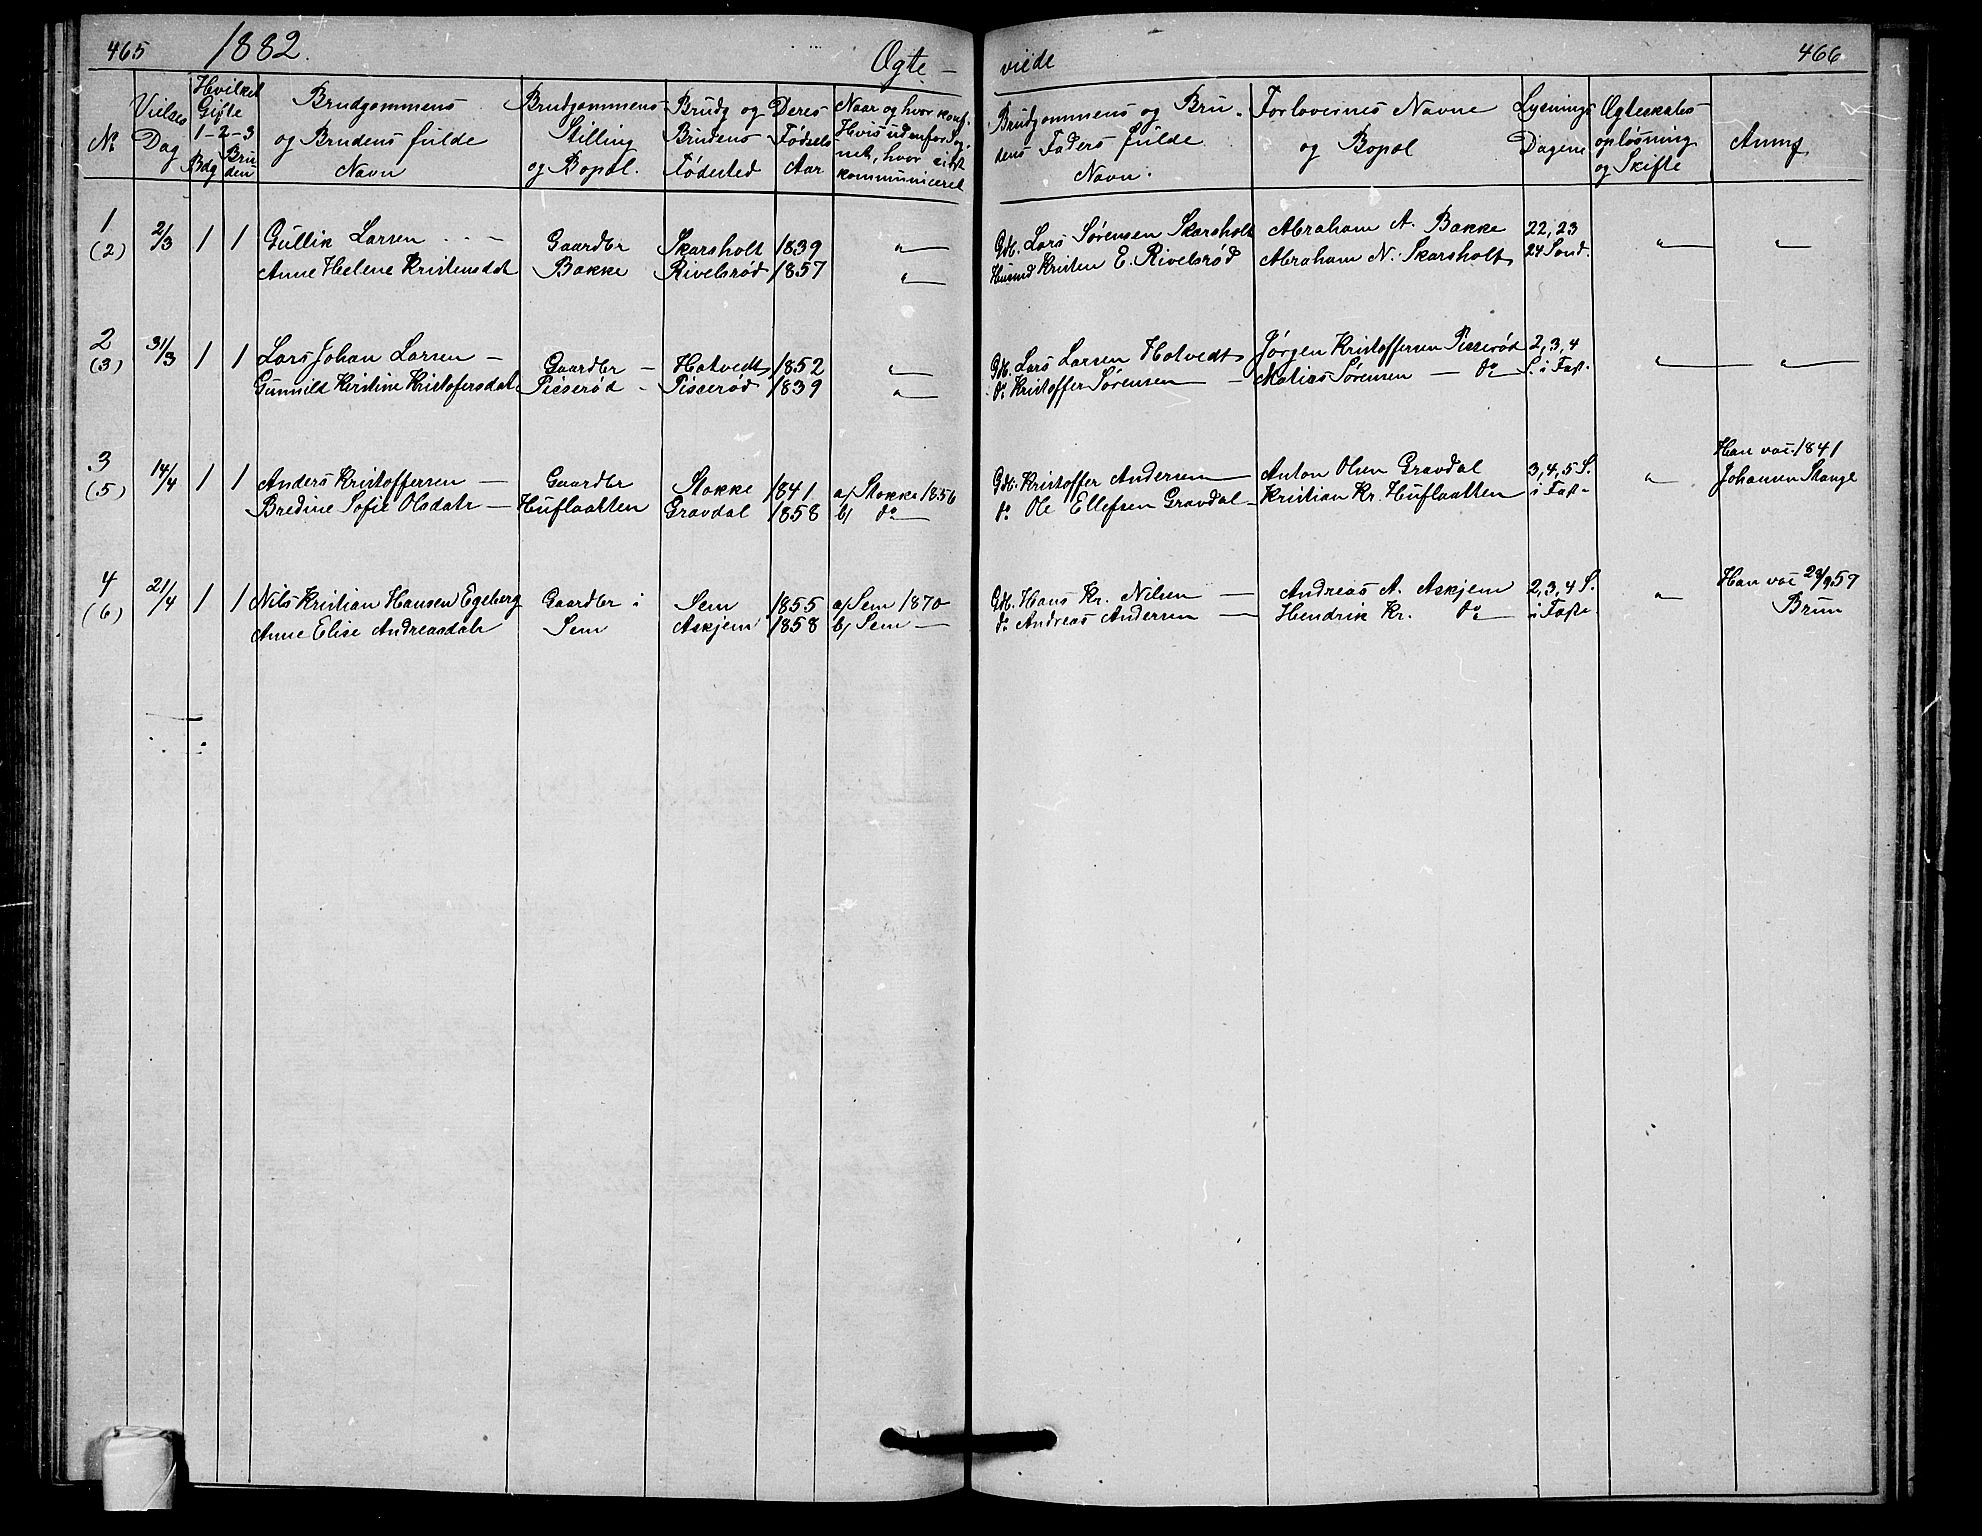 465 1882. Ægte –
viede 466
Nr
Vielses Dag
Hvilket Gifte 1-2-3 Bdg Bruden
Brudgommens og Brudens fulde Navn
Brudgommens Stilling og Bopæl.
Brudg og Brudens Fødested
Deres Fødsels Aar
Naar og hvor konf. Hvis udenfor Sognet, hvor sidst kommuniceret
Brudgommens og Brudens Faders fulde Navn.
Forlovernes Navne og Bopæl
Lysnings Dagene
Ægteskabs opløsning og Skifte
Anm.
1 2/3 1 1 Gullik Larsen - Gaardbr Skarsholt 1839 " Gdb. Lars Sørensen Skarsholt Abraham A. Bakke 22, 23 " "
(2) Anne Helene Kristensdat Bakke Rivelsrød 1857 " Husmd Kristen E. Rivelsrød Abraham N. Skarsholt 24 Sønd.
2 31/3 1 1 Lars Johan Larsen – Gaardbr – Hotvedt 1852 " Gdb. Lars Larsen Hotvedt Jørgen Kristoffersen Pisserød 2, 3, 4 " "
(3) Gunnild Kirstine Kristofersdat Pisserød – Pisserød 1839 " do Kristoffer Sørensen — Matias Sørensen — do S. i Fast.
3 14/4 1 1 Anders Kristoffersen – Gaardbr Stokke 1841 a) Stokke 1856 Gdb. Kristoffer Andersen — Anton Olsen Gravdal 3, 4, 5 S. " Han vac. 1841
(5) Bredine Sofie Olsdatr – Huflaatten Gravdal 1858 b) do — do Ole Ellefsen Gravdal – Kristian Kr. Huflaatten i Fast – Johannes Stange
4 21/4 1 1 Nils Kristian Hansen Egeberg Gaardbr i Sem 1855 a) Sem 1870 Gdb. Hans Kr. Nilsen — Andreas A. Askjem 2, 3, 4 S. " Han vac 29/9 57
(6) Anne Elise Andreasdatr Sem Askjem 1858 b) Sem — do Andreas Andersen — Hendrik Kr. do — i Faste Brun